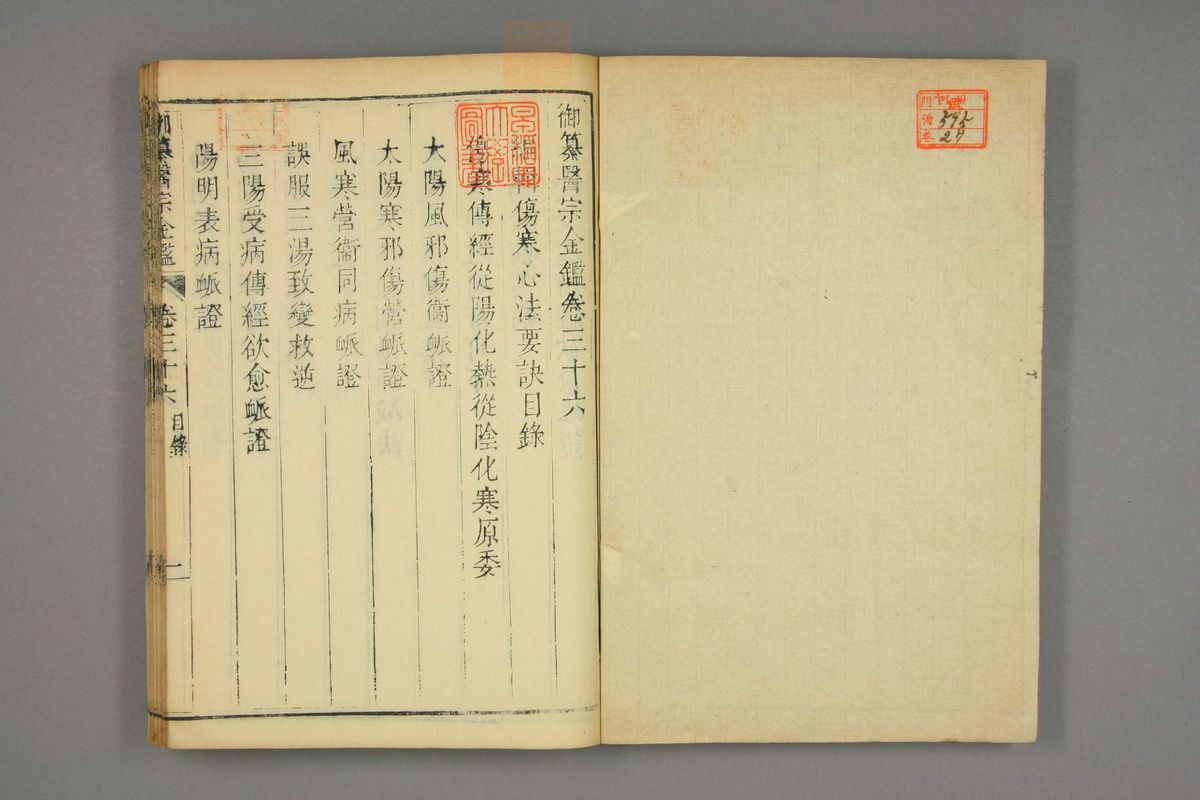 御纂醫宗金鑑卷三十六
編輯傷寒心法要訣目錄
傷寒傳經從陽化熱從陰化寒原委
太陽風邪傷衞脈證
太陽寒邪傷營脈證
風寒營衞同病脈證
誤服三湯致變救逆
三陽受病傳經欲愈脈證
陽明表病脈證
御纂醫宗金鑑 卷三十六 目錄 一
門
號 595
卷 29